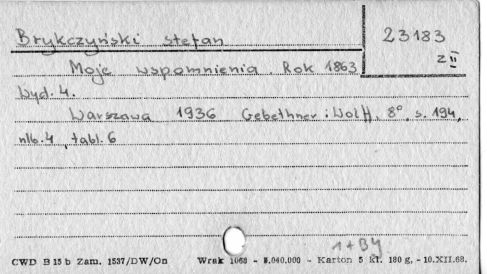 Brykczyński Stefan
23183
z II
Moje wspomnienia. Rok 1863
Wyd. 4.
Warszawa 1936 Gebethner i Wolff, 8°, s. 194,
nlb. 4, tabl. 6
1+BY
CWD B 15 b Zam. 1537/DW/On Wrak 1068 - 8.040.000 - Karton 5 kl. 180 g, - 10.XII.68.